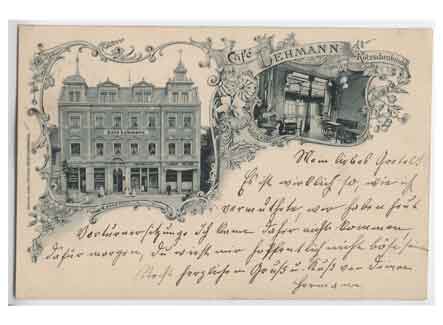 Café LEHMANN
Kötzschenbroda
Café Lehmann
Mein liebes Gretel!
Es ist wirklich so, wie ich
vermuthete, wir haben heut
Vorturnersitzung. Ich kann dafür nicht kommen,
dafür morgen, Du wirst mir hoffentlich nicht böse sein
Recht herzlichen Gruß u. Kuß von Deinem
Hermann.